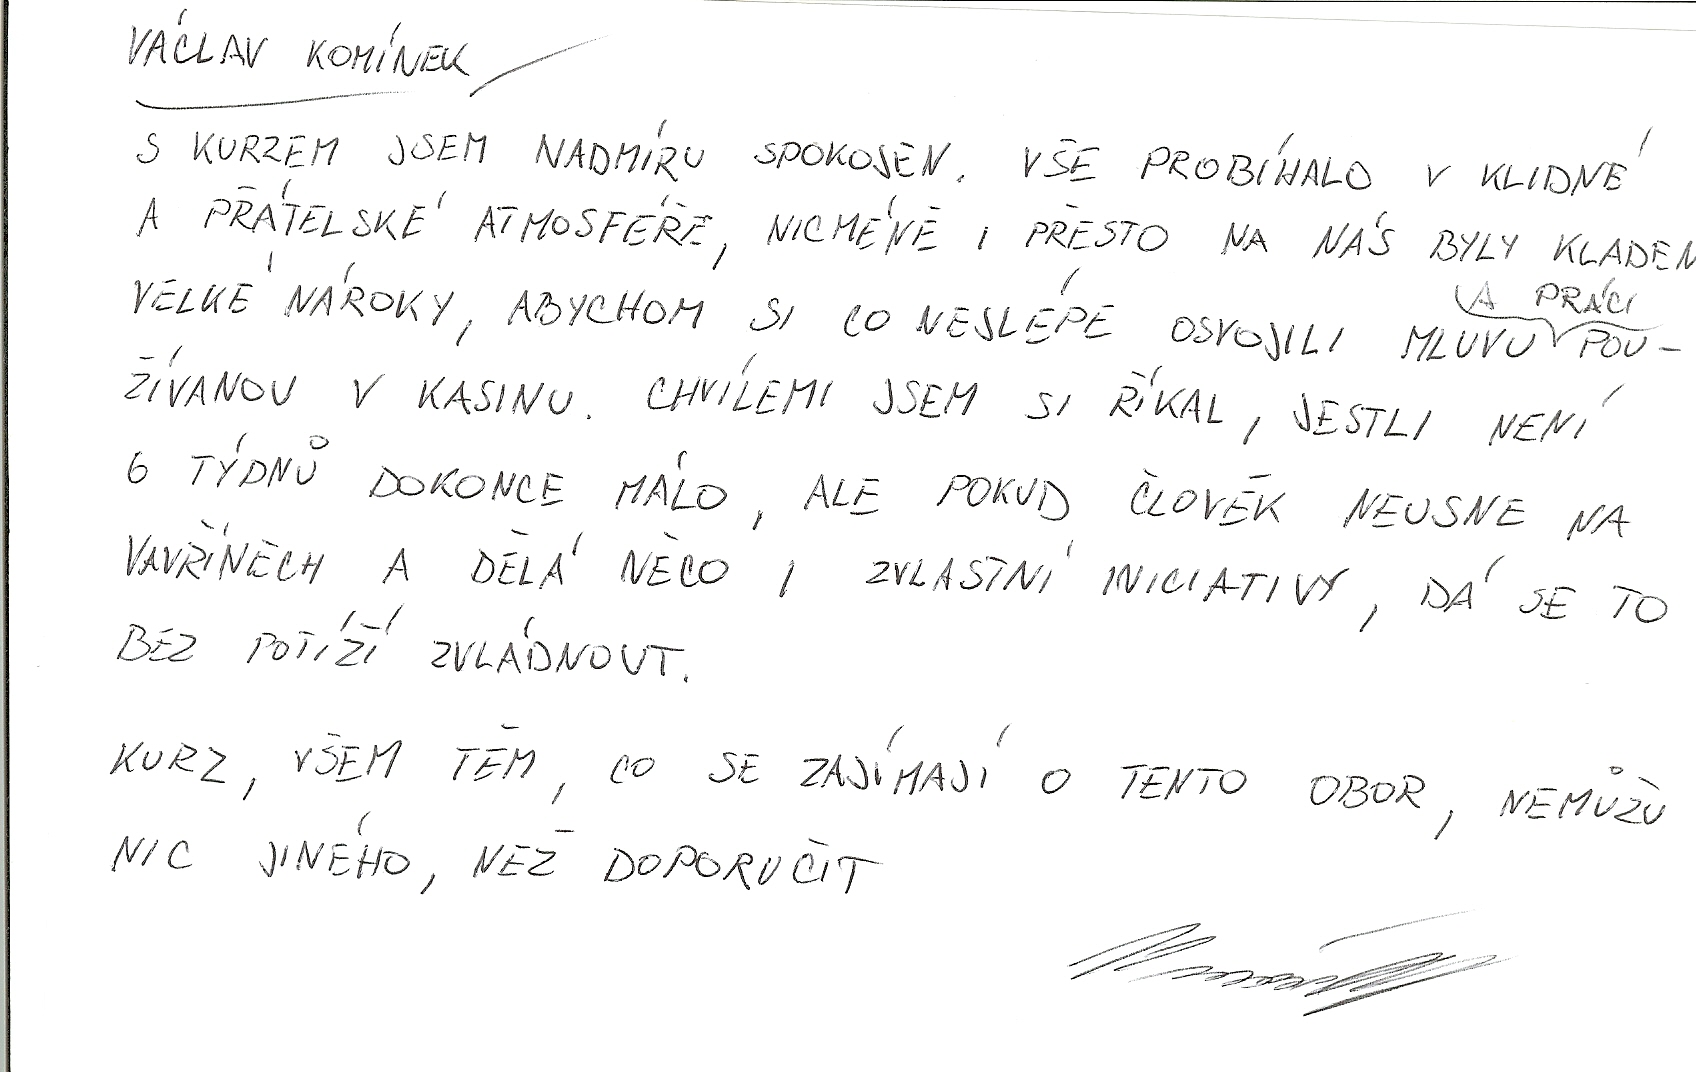 VÁCLAV KOMÍNEK
S KURZEM JSEM NADMÍRU SPOKOJEN. VŠE PROBÍHALO V KLIDNÉ
A PŘÁTELSKÉ ATMOSFÉŘE, NICMÉNĚ I PŘESTO NA NÁS BYLY KLADEN
VELKÉ NÁROKY, ABYCHOM SI CO NEJLÉPE OSVOJILI MLUVU A PRÁCI POU-
ŽÍVANOU V KASINU. CHVÍLEMI JSEM SI ŘÍKAL, JESTLI NENÍ
6 TÝDNŮ DOKONCE MÁLO, ALE POKUD ČLOVĚK NEUSNE NA
VAVŘÍNECH A DĚLÁ NĚCO I ZVLASTNÍ INICIATIVY, DÁ SE TO
BEZ POTÍŽÍ ZVLÁDNOUT.
KURZ, VŠEM TĚM, CO SE ZAJÍMAJÍ O TENTO OBOR, NEMŮŽU
NIC JINÉHO, NEŽ DOPORUČIT